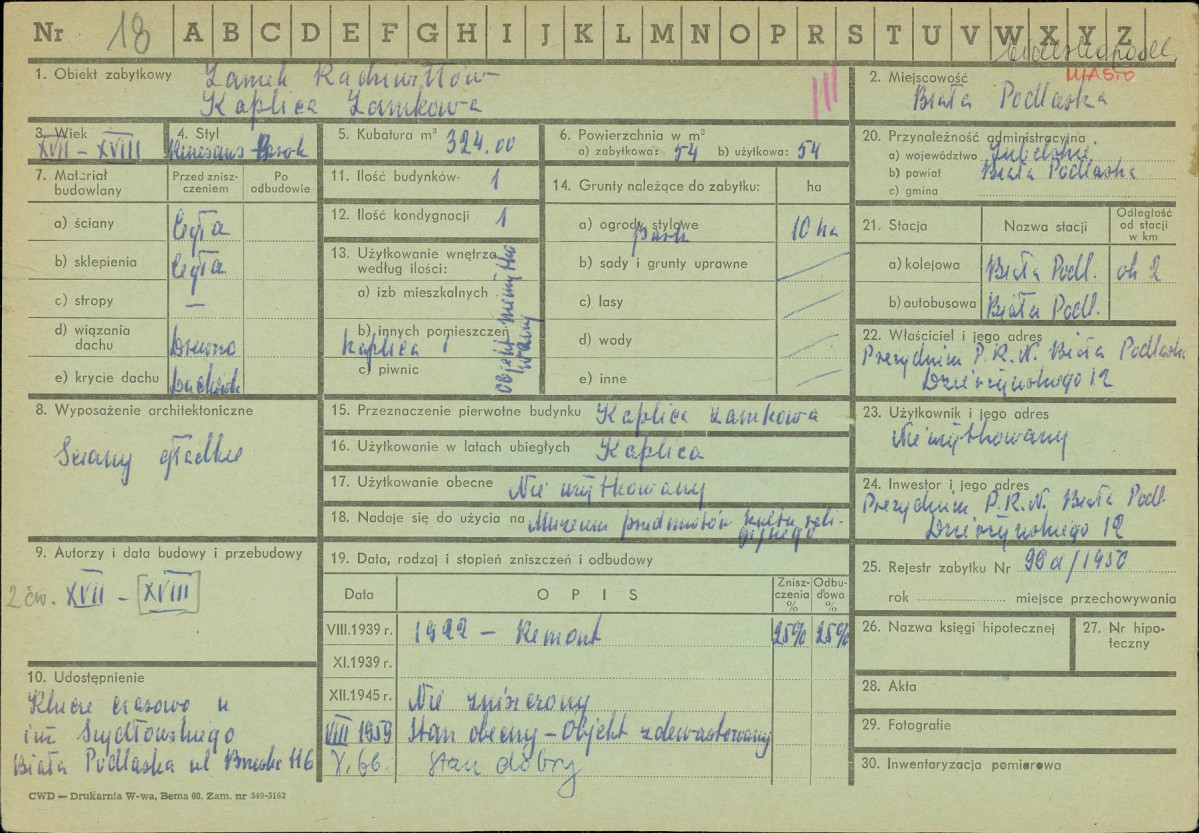 Nr 18 A B C D E F G H I J K L M N O P R S T U V W X Y Z
1. Obiekt zabytkowy Zamek Radziwiłłów
Kaplica Zamkowa
III
2. Miejscowość MIASTO
Biała Podlaska
3. Wiek
XVII - XVIII
4. Styl
Renesans - Barok
5. Kubatura m³ 324.00
6. Powierzchnia w m²
a) zabytkowa: 54 b) użytkowa: 54
20. Przynależność administracyjna
a) województwo Lubelskie
b) powiat Biała Podlaska
c) gmina
7. Materiał budowlany
Przed zniszczeniem
Po odbudowie
a) ściany Cegła
b) sklepienia Cegła
c) stropy —
d) wiązania dachu Drewno
e) krycie dachu
11. Ilość budynków- 1
12. Ilość kondygnacji 1
13. Użytkowanie wnętrza według ilości:
a) izb mieszkalnych
b) innych pomieszczeń
Kaplica 1
c) piwnic
14. Grunty należące do zabytku: ha
a) ogrody stylowe
park 10 ha
b) sady i grunty uprawne
c) lasy
d) wody
e) inne
21. Stacja Nazwa stacji Odległość od stacji w km
a) kolejowa Biała Podl. ok 2
b) autobusowa Biała Podl.
22. Właściciel i jego adres
Prezydium P.R.N. Biała Podlaska
Dzierżyńskiego 12
8. Wyposażenie architektoniczne
Ściany gładkie
15. Przeznaczenie pierwotne budynku Kaplica zamkowa
16. Użytkowanie w latach ubiegłych Kaplica
17. Użytkowanie obecne Nie użytkowany
18. Nadaje się do użycia na Muzeum przedmiotów kultu reli-
gijnego
23. Użytkownik i jego adres
Nie użytkowany
24. Inwestor i jego adres
Prezydium P.R.N. Biała Podl.
Dzierżyńskiego 12
9. Autorzy i data budowy i przebudowy
2 ćw. XVII - XVIII
19. Data, rodzaj i stopień zniszczeń i odbudowy
Data OPIS Zniszczenia % Odbudowa %
VIII.1939 r. 1922 - Remont 25% 25%
XI.1939 r.
XII.1945 r. Nie zniszczony
VIII 1959 Stan obecny - Objekt zdewastowany
X. 66. Stan dobry
25. Rejestr zabytku Nr /1950
rok miejsce przechowywania
26. Nazwa księgi hipotecznej
27. Nr hipoteczny
28. Akta
29. Fotografie
30. Inwentaryzacja pomiarowa
10. Udostępnienie
Klucze czasowo u
inż Szydłowskiego
Biała Podlaska ul Brzeska 116
CWD — Drukarnia W-wa, Bema 60. Zam. nr 349-5162